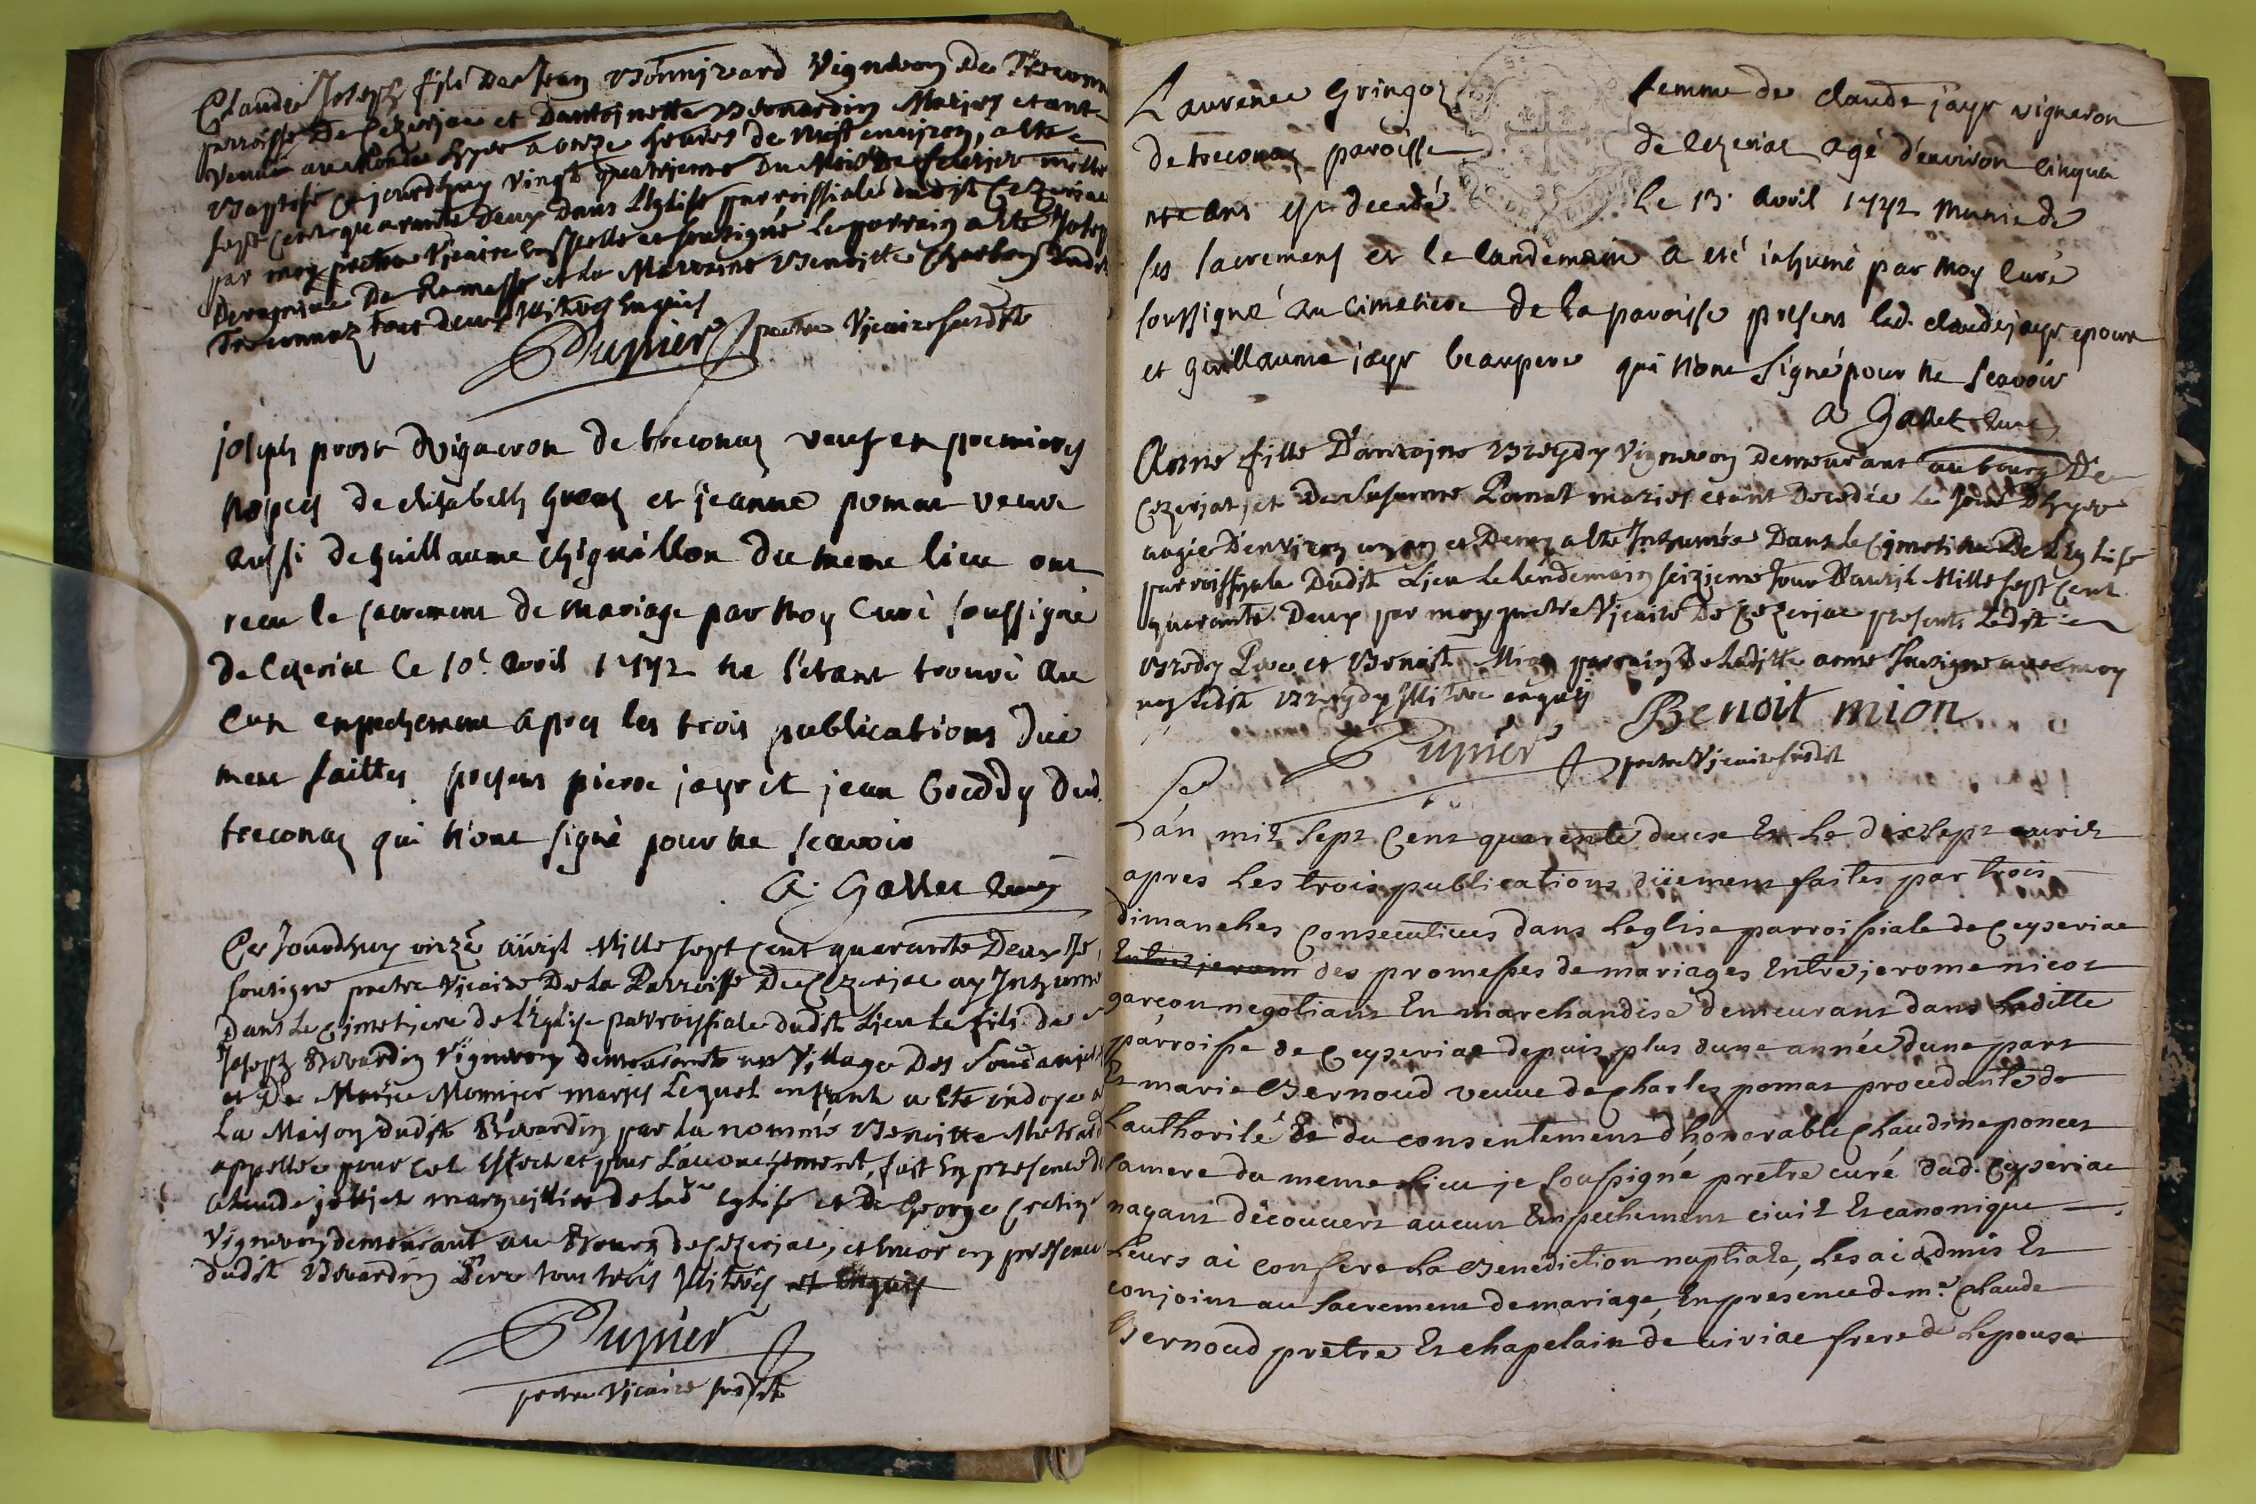 Claude Joseph fils De Jean Bonnivard Vigneron De Treconn
parroisse De Cezeriac et Dantoinette Bernardin Mariez etant
venu au Monde hyer a onze heures de nuit environ, a eté
Baptisé ce jourdhuy vingt quatrieme Du Mois De fevrier mille
sept cent quarante deux dans L'Eglise parroissiale dudit Cezeriac
par moy pretre Vicaire et soussigné Le parrain a eté Josep
De Ramasse et La Marraine Benoitte Dud
Treconnaz tout deux Illitrés Enquis
Pupier pretre Vicaire susdit
joseph prost Vigneron de treconaz veuf en premieres
nopces de elizabeth et jeanne pomat veuve
aussi de guillaume chiquillon du meme lieu ont
recu le sacrement de mariage par moy Curé soussigné
de Cezeriat Ce 10e avril 1742 ne s'etant trouvé au
cun empechement apres les trois publications due
ment faittes presens pierre jayr et jean Greddy dud.
treconaz qui n'ont signé pour ne scavoir
A. Gallet Curé
Ce Jourdhuy onze avril Mille sept cent quarante Deux Je
sousigné pretre Vicaire De La Parroisse De Cezeriac ay Inhumé
Dans Le Cimetiere de L'Eglise parroissiale dudit Lieu Le fils de
Joseph Bevardin Vigneron demeurant au Village Des
et De Marie Monnier mariés Lequel enfant a eté indoyé a
La Maison dudit Bevardin par La nommé Benoitte
appellée pour cet Effect et pour L'accouchement, fait En presence de
Claude marguillier de lade Eglise et de George Cretin
Vigneron demeurant au Bourg de Cezeriac, et encor en presence
dudit Bevardin Pere tous trois Illitrés et Enquis
Pupier
pretre Vicaire susdit
Laurence Gringoz femme de claude jayr vigneron
de treconaz paroisse de Cezeriat agé d'environ cinqua
nte ans est decedé le 13 avril 1742 munie de
ses sacrements et le landemain a eté inhumé par moy curé
soussigné au cimetiere de la paroisse presens led. claude jayr epoux
et guillaume jayr beaupere qui n'ont signé pour ne scavoir
A Gallet Curé
Anne fille D'antoine Breydy Vigneron Demeurant au bourg De
Cezeriat, et De Susanne Pomat mariés etant Decedée Le Jour D'hyer
aagée D'environ un an et Demy a eté Inhumée Dans le Cimetiere De L'Eglise
parroissiale Dudit Lieu Le Lendemain seizieme Jour D'avril Mille sept Cent
quarante Deux par moy pretre Vicaire De Cezeriac presents Ledit
Bredy Pere et Benoit Mion parrain de Laditte anne sousigné avec moy
non Ledit Breydy Illitré enquis
Benoit mion
Pupier pretre Vicaire susdit
L'an mil sept Cent quarente deux Et Le dix sept avril
apres Les trois publications düement faites par trois
dimanches Consecutives dans Leglise parroissiale de Ceyseriac
Entre jerom des promesses de mariages Entre jerome nicot
garçon negotiant En marchandise demeurant dans Laditte
parroisse de Ceyseriac depuis plus dune année dune part
Et marie Bernoud veuve de Charles pomat procedante de
Lauthorité Et du consentement d'honorable Claudine poncet
samere du meme lieu je soussigné pretre curé dud. Ceyseriac
nayant découvert aucun Empechement civil Et canonique
Leurs ai conferé La Benediction nuptiale, Les ai admis Et
conjoint au sacrement de mariage, En présence de mre. Claude
Bernoud pretre Et chapelain de viriac frere de Lepouse